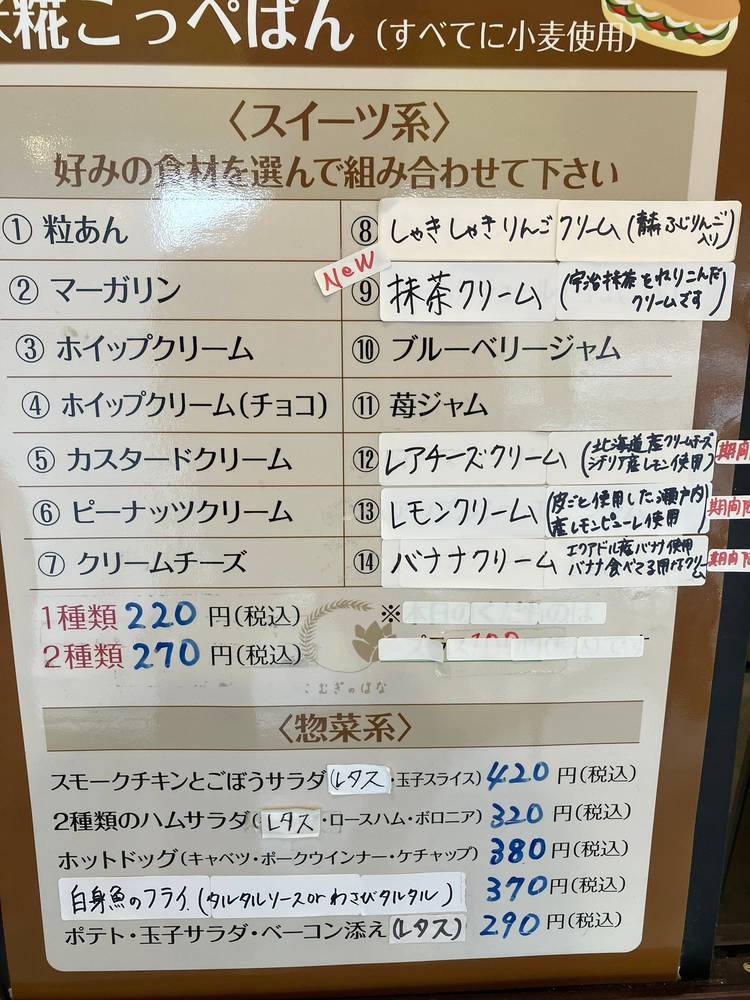 糀こっぺぱん (すべてに小麦使用)
〈スイーツ系〉
好みの食材を選んで組み合わせて下さい
① 粒あん
② マーガリン
③ ホイップクリーム
④ ホイップクリーム(チョコ)
⑤ カスタードクリーム
⑥ ピーナッツクリーム
⑦ クリームチーズ
⑧ しゃきしゃきりんごクリーム (ふじりんご入り)
NeW
⑨ 抹茶クリーム (宇治抹茶をねりこんだクリームです)
⑩ ブルーベリージャム
⑪ 苺ジャム
⑫ レアチーズクリーム (北海道産クリームチーズ シチリア産レモン使用) 期間
⑬ レモンクリーム (皮ごと使用した瀬戸内産レモンピューレ使用) 期間
⑭ バナナクリーム エクアドル産バナナ使用 バナナ食べてる用なクリーム 期間
1種類 220 円(税込)
2種類 270 円(税込)
※
こむぎのはな
〈惣菜系〉
スモークチキンとごぼうサラダ(レタス・玉子スライス) 420 円(税込)
2種類のハムサラダ(レタス・ロースハム・ボロニア) 320 円(税込)
ホットドッグ(キャベツ・ポークウインナー・ケチャップ) 380 円(税込)
白身魚のフライ (タルタルソースorわさびタルタル) 370 円(税込)
ポテト・玉子サラダ・ベーコン添え(レタス) 290 円(税込)